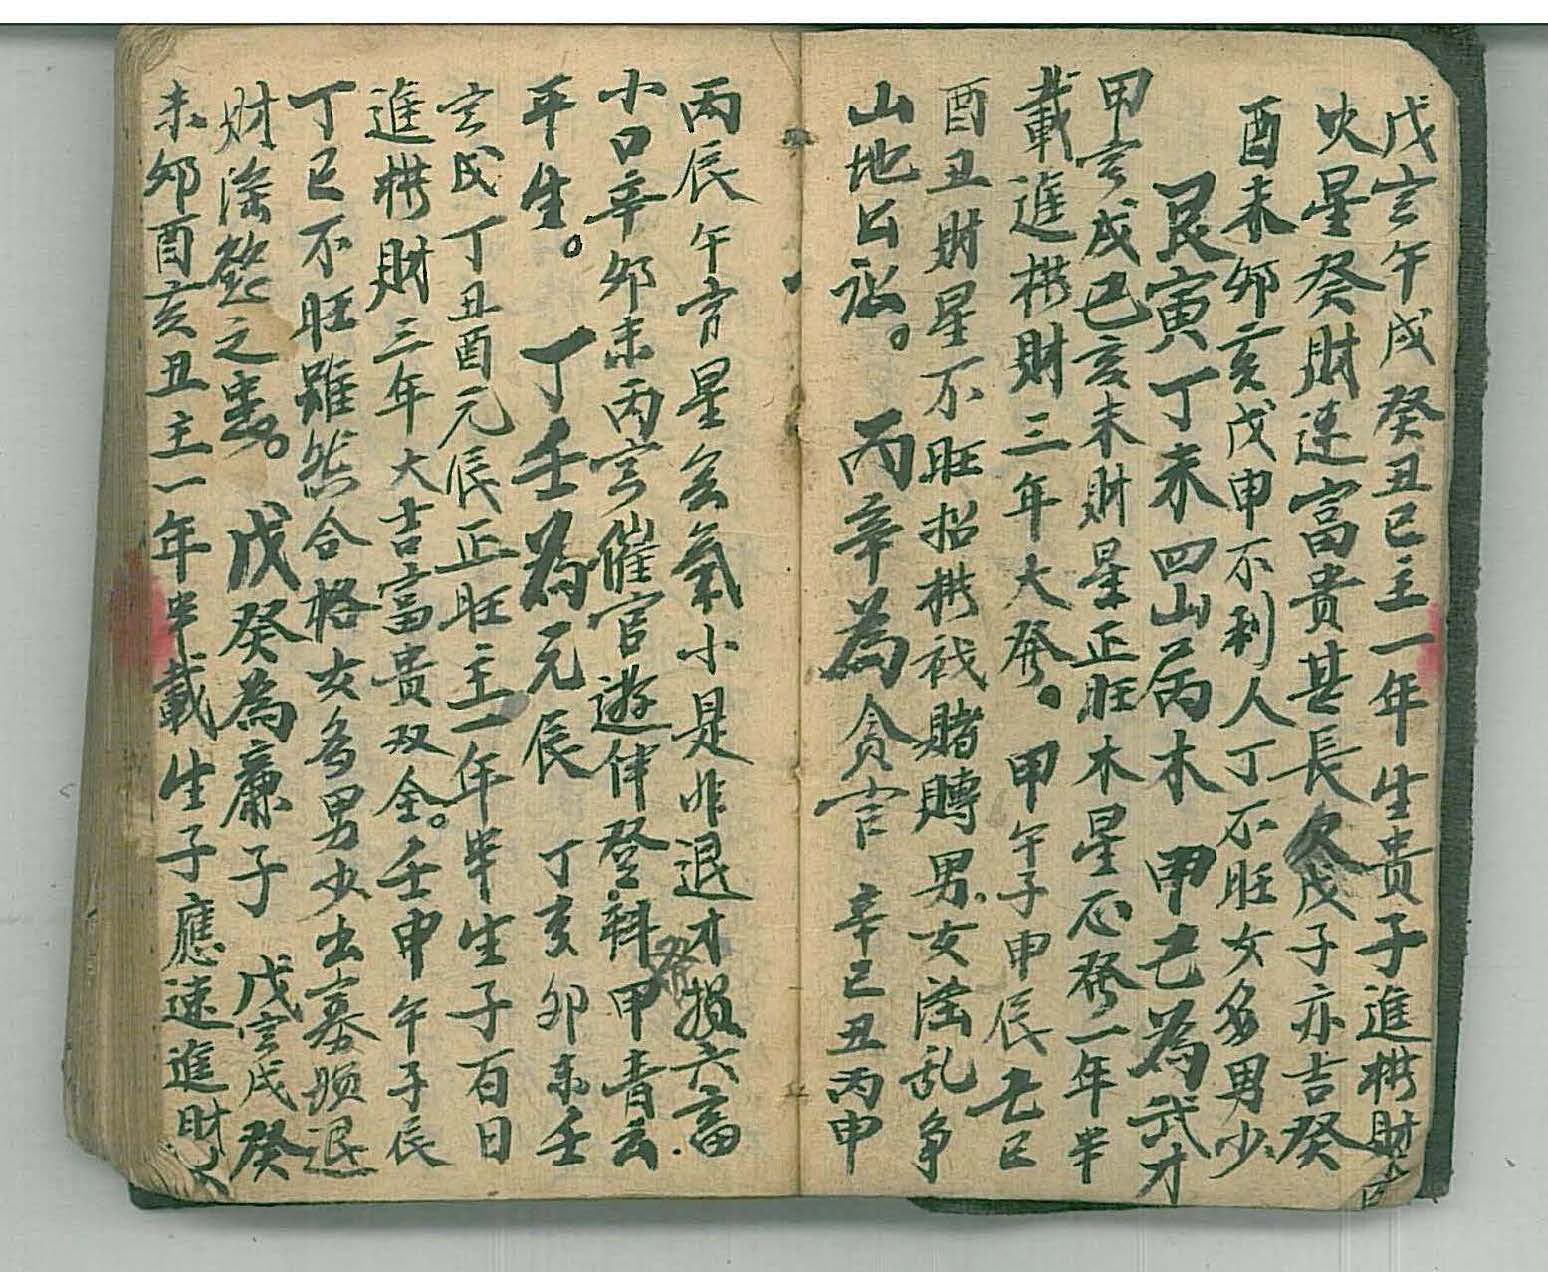 戊寅午戌癸丑巳主一年生貴子進横財
火星癸財連富貴甚長久戊子亦吉癸
酉未卯亥戊申不利人丁不旺女多男少
艮寅丁未四山屬木 甲己為武才
甲寅戌己亥未財星正旺木星応發一年半
載進横財三年大發。甲午子申辰乙巳
酉丑財星不旺招横劫賭轉男女淫乱爭
山地公訟。 丙辛為貪官 辛巳丑丙申
丙辰午官星氣小是非退才損六畜
小口辛卯未丙寅催官遊伴登科發甲青云
平生。 丁壬為元辰 丁亥卯未壬
寅戌丁丑酉元辰正旺主一年半生子百日
進横財三年大吉富貴双全。壬申午子辰
丁巳不旺雖然合格女多男少出寡婦退
財淫亂之患。 戊癸為廉子 戊寅戌癸
未卯酉亥丑主一年半載生子應速進財